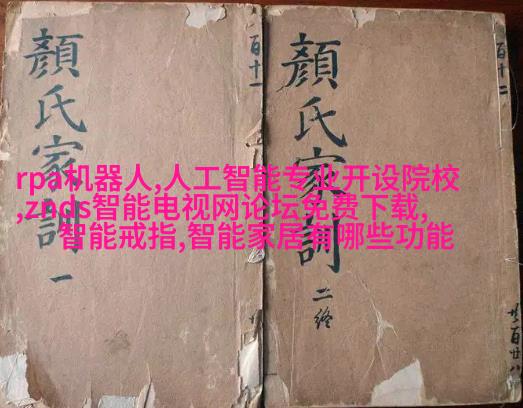 顔氏家訓 一
顔氏家訓 二終
百十一
百十二
rpa机器人,人工智能专业开设院校
,znds智能电视网论坛免费下载,
智能戒指,智能家居有哪些功能